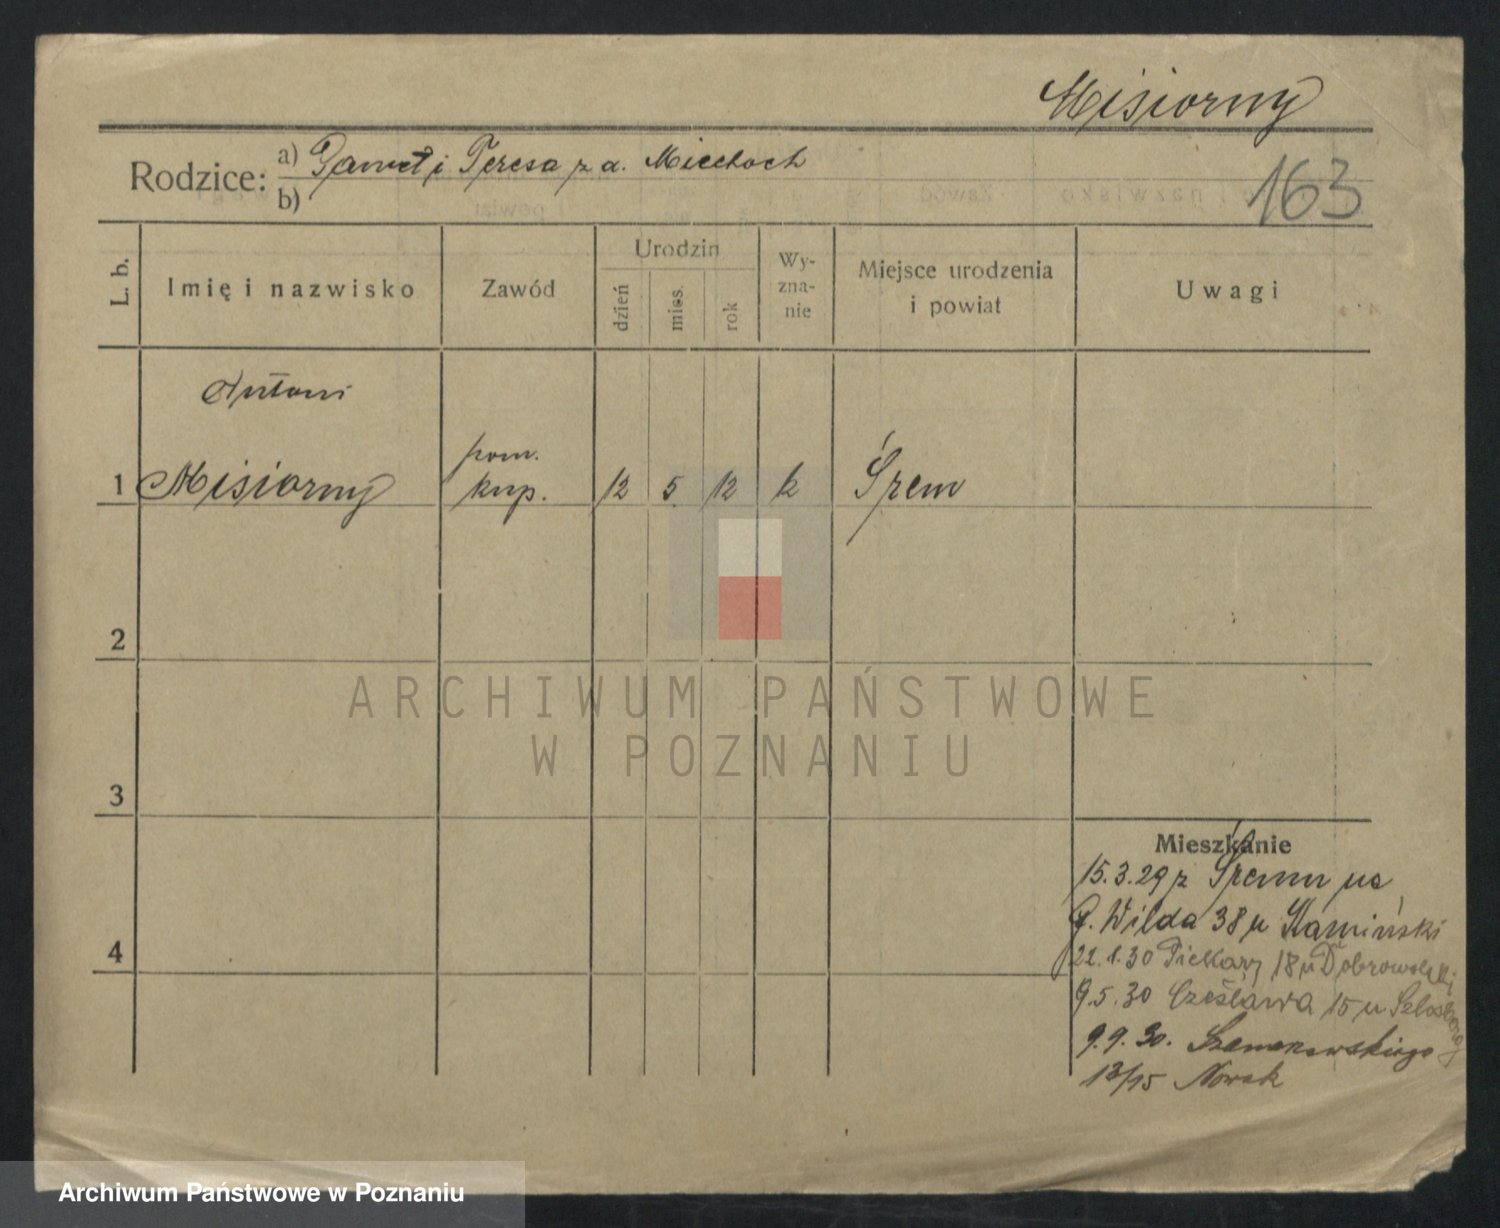 Misiorny
Rodzice: a) Paweł i Teresa z d. Miechoch
b)
163
L. b.
Imię i nazwisko
Zawód
Urodzin
dzień
mies.
rok
Wy-
zna-
nie
Miejsce urodzenia
i powiat
Uwagi
Antoni
1 Misiorny
pom.
kup.
12 5 12 k Śrem
2
ARCHIWUM PAŃSTWOWE
W POZNANIU
3
Mieszkanie
15.3.29 z Śremu na
G. Wilda 38 u Kamiński
4
22.1.30 Piekary 18 u Dobrowolskij
9.5.30 Czesława 15 u
9.9.30.
13/15 Nowak
Archiwum Państwowe w Poznaniu